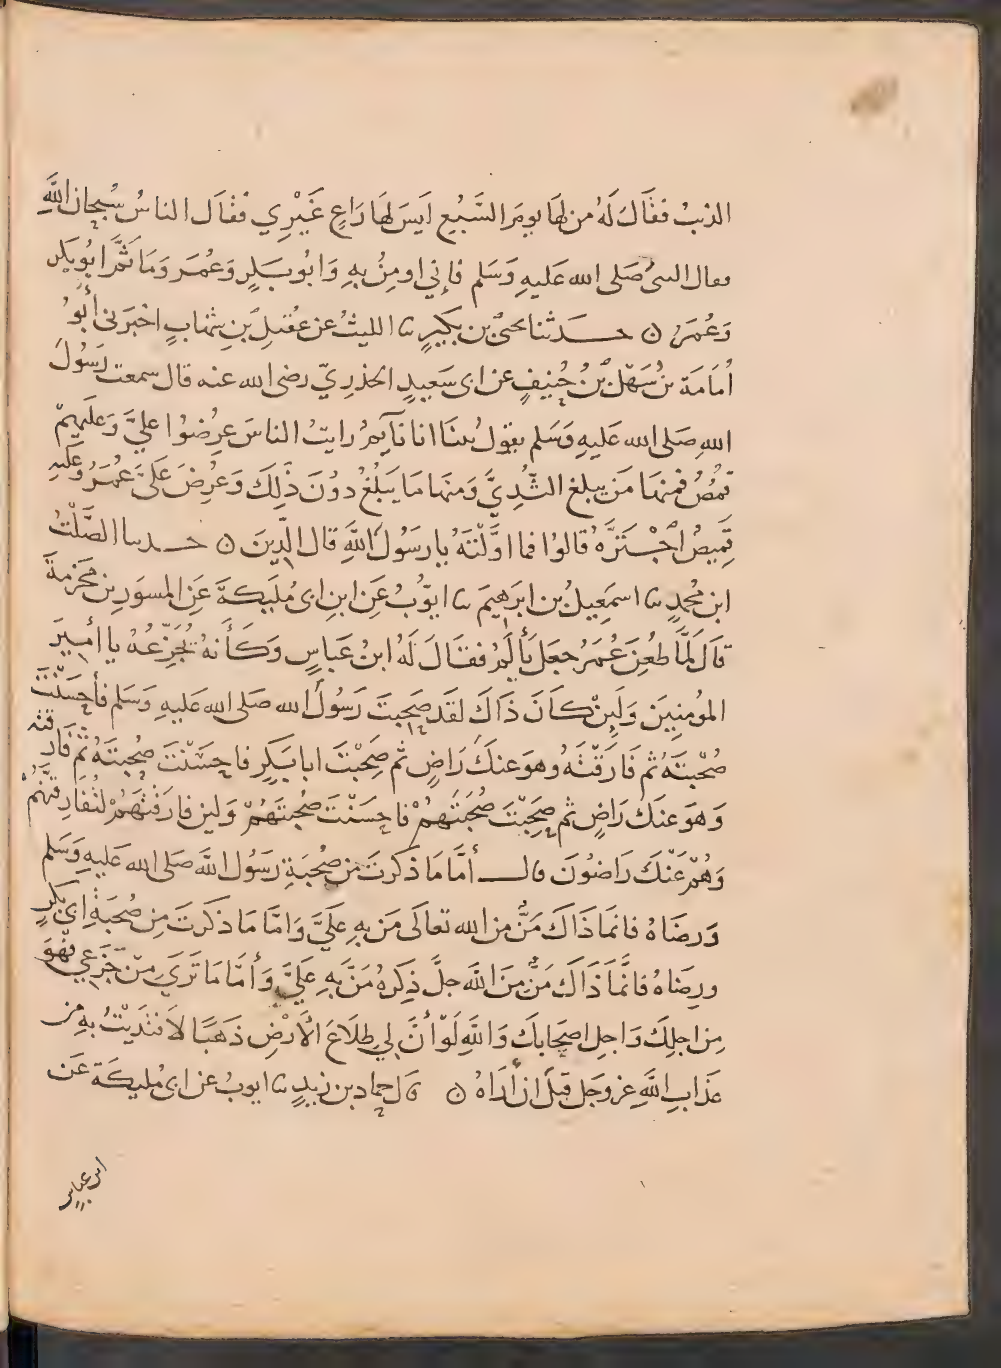 الذئب فقَالَ لَهُ من لهَا يومَ السَّبُعِ لَيسَ لهَا رَاعٍ غَيْرِي فقَال الناسُ سُبحان اللَّهِ
فقال النبىُّ صَلى الله عَليهِ وَسَلم فإني اومِنُ بهِ وَابُو بَكرٍ وَعُمَر وَمَا ثَمَّ ابُو بكرٍ
وَعُمَرُ ۞ حَدثنا يحيىٰ بن بُكَيرٍ ثنا الليثُ عن عُقَيلٍ بَنِ شهَابٍ اخبَرنى أبُو
اُمَامَة بنُ سَهْلِ بْنُ حُنِيفٍ عن ابى سَعيدٍ الخدرِيّ رضى الله عنه قال سمعت رَسُولَ
اللهِ صَلى الله عَليهِ وَسَلم يقول بينَا انا نآيِمٌ رايتُ الناسَ عرِضوُا عليَّ وَعَليهِمْ
قمُصٌ فمنهَا مَن يبلغ الثُّدِيَّ وَمنهَا مَا يَبلُغُ دوُنَ ذَلِكَ وَعُرِضَ عَلَىَّ عُمَرُ وَعَليهِ
قَمِيصٌ اجْتَرَّهُ قالوُا فما اوَّلْتَهُ يا رَسُولَ اللَّهِ قال الدِّينَ ۞ حَدثنا الصَّلْتُ
ابن مُحمدٍ ثنا اسمَعِيلُ بن ابرَهِيمَ ثنا ايوُّبُ عَنِ ابنِ ابى مُلَيكةَ عَنِ المسوَرِ بن مَخرَمةَ
قالَ لَمَّا طُعِنَ عُمَرُ جعَلَ يَألَمُ فقَالَ لَهُ ابنُ عَباسٍ وَكَأنهُ يُجَزِّعُهُ يا أمِيرَ
المؤمنِينَ وَلَيِنْ كَانَ ذَاكَ لقَد صَحِبتَ رَسُولَ الله صَلى الله عَليهِ وَسَلم فأحسَنْتَ
صُحْبتَهُ ثم فَارَقْتَهُ وهوَ عنكَ رَاضٍ ثم صَحِبْتَ ابا بَكرٍ فاحسَنْتَ صُحبتَهُ ثمَّ فَارَقتهُ
وَهوَ عنكَ رَاضٍ ثم صَحِبْتَ صُحْبَتَهُمْ فاحسَنْتَ صُحبتَهُمْ وَلين فارَقْتَهُمْ لتُفارِقَنَّهُمْ
وَهُمْ عَنْكَ رَاضُونَ قال أمَّا مَا ذَكَرتَ مِن صُحْبَةِ رَسُولِ اللَّه صَلى الله عَليهِ وَسَلم
وَرضَاهُ فانمَا ذَاكَ مَنٌّ مِن الله تعَالَى مَنَّ بهِ عَلَيَّ وَامَّا مَا ذكَرتَ مِن صُحبَةِ ابِي بَكرٍ
ورِضَاهُ فانَّمَا ذَاكَ مَنٌّ مِنَ اللَّه جلَّ ذِكرهُ مَنَّ بهِ عَلَيَّ وَأمَّا مَا تَرَي مِنْ جَزَعِي فهْوَ
مِن اجلِكَ وَاجلِ اصحَابكَ وَاللَّهِ لَوْ أنَّ لِي طِلَاعَ الأَرْضِ ذَهَبًا لَافتَدَيْتُ بهِ مِن
عذَابِ اللَّهِ عز وجَل قبلَ انْ أرَاهُ ۞ قال حمادُ بن زيدٍ ثنا ايوبُ عن ابى مُليكَةَ عَن
ابن عباس